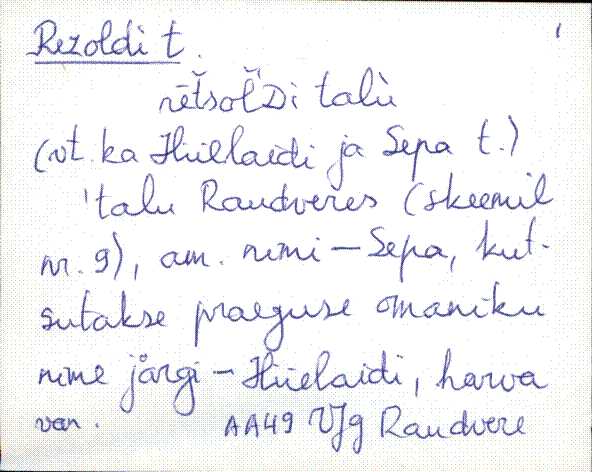 Rezoldi t.
rētšolʹDi talù
(vt. ka Hiielaidi ja Sepa t.)
'talu Raudveres (skeemil
nr. 9), am. nimi – Sepa, kut-
sutakse praeguse omaniku
nime järgi – Hiielaidi, harva
van. AA49 VJg Raudvere